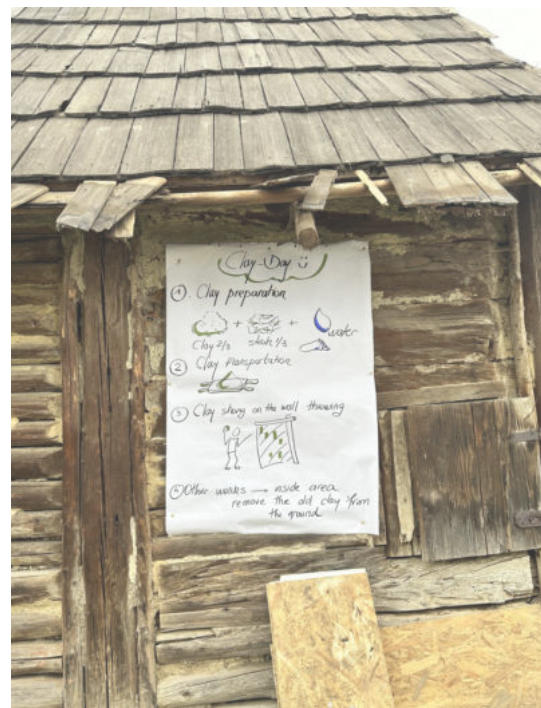 Clay-Day
1. Clay preparation
+ +
water
Clay 2/3
1/3
2 Clay transportation
3 Clay on the wall throwing
4 Other works → inside area
remove the old clay from
the ground